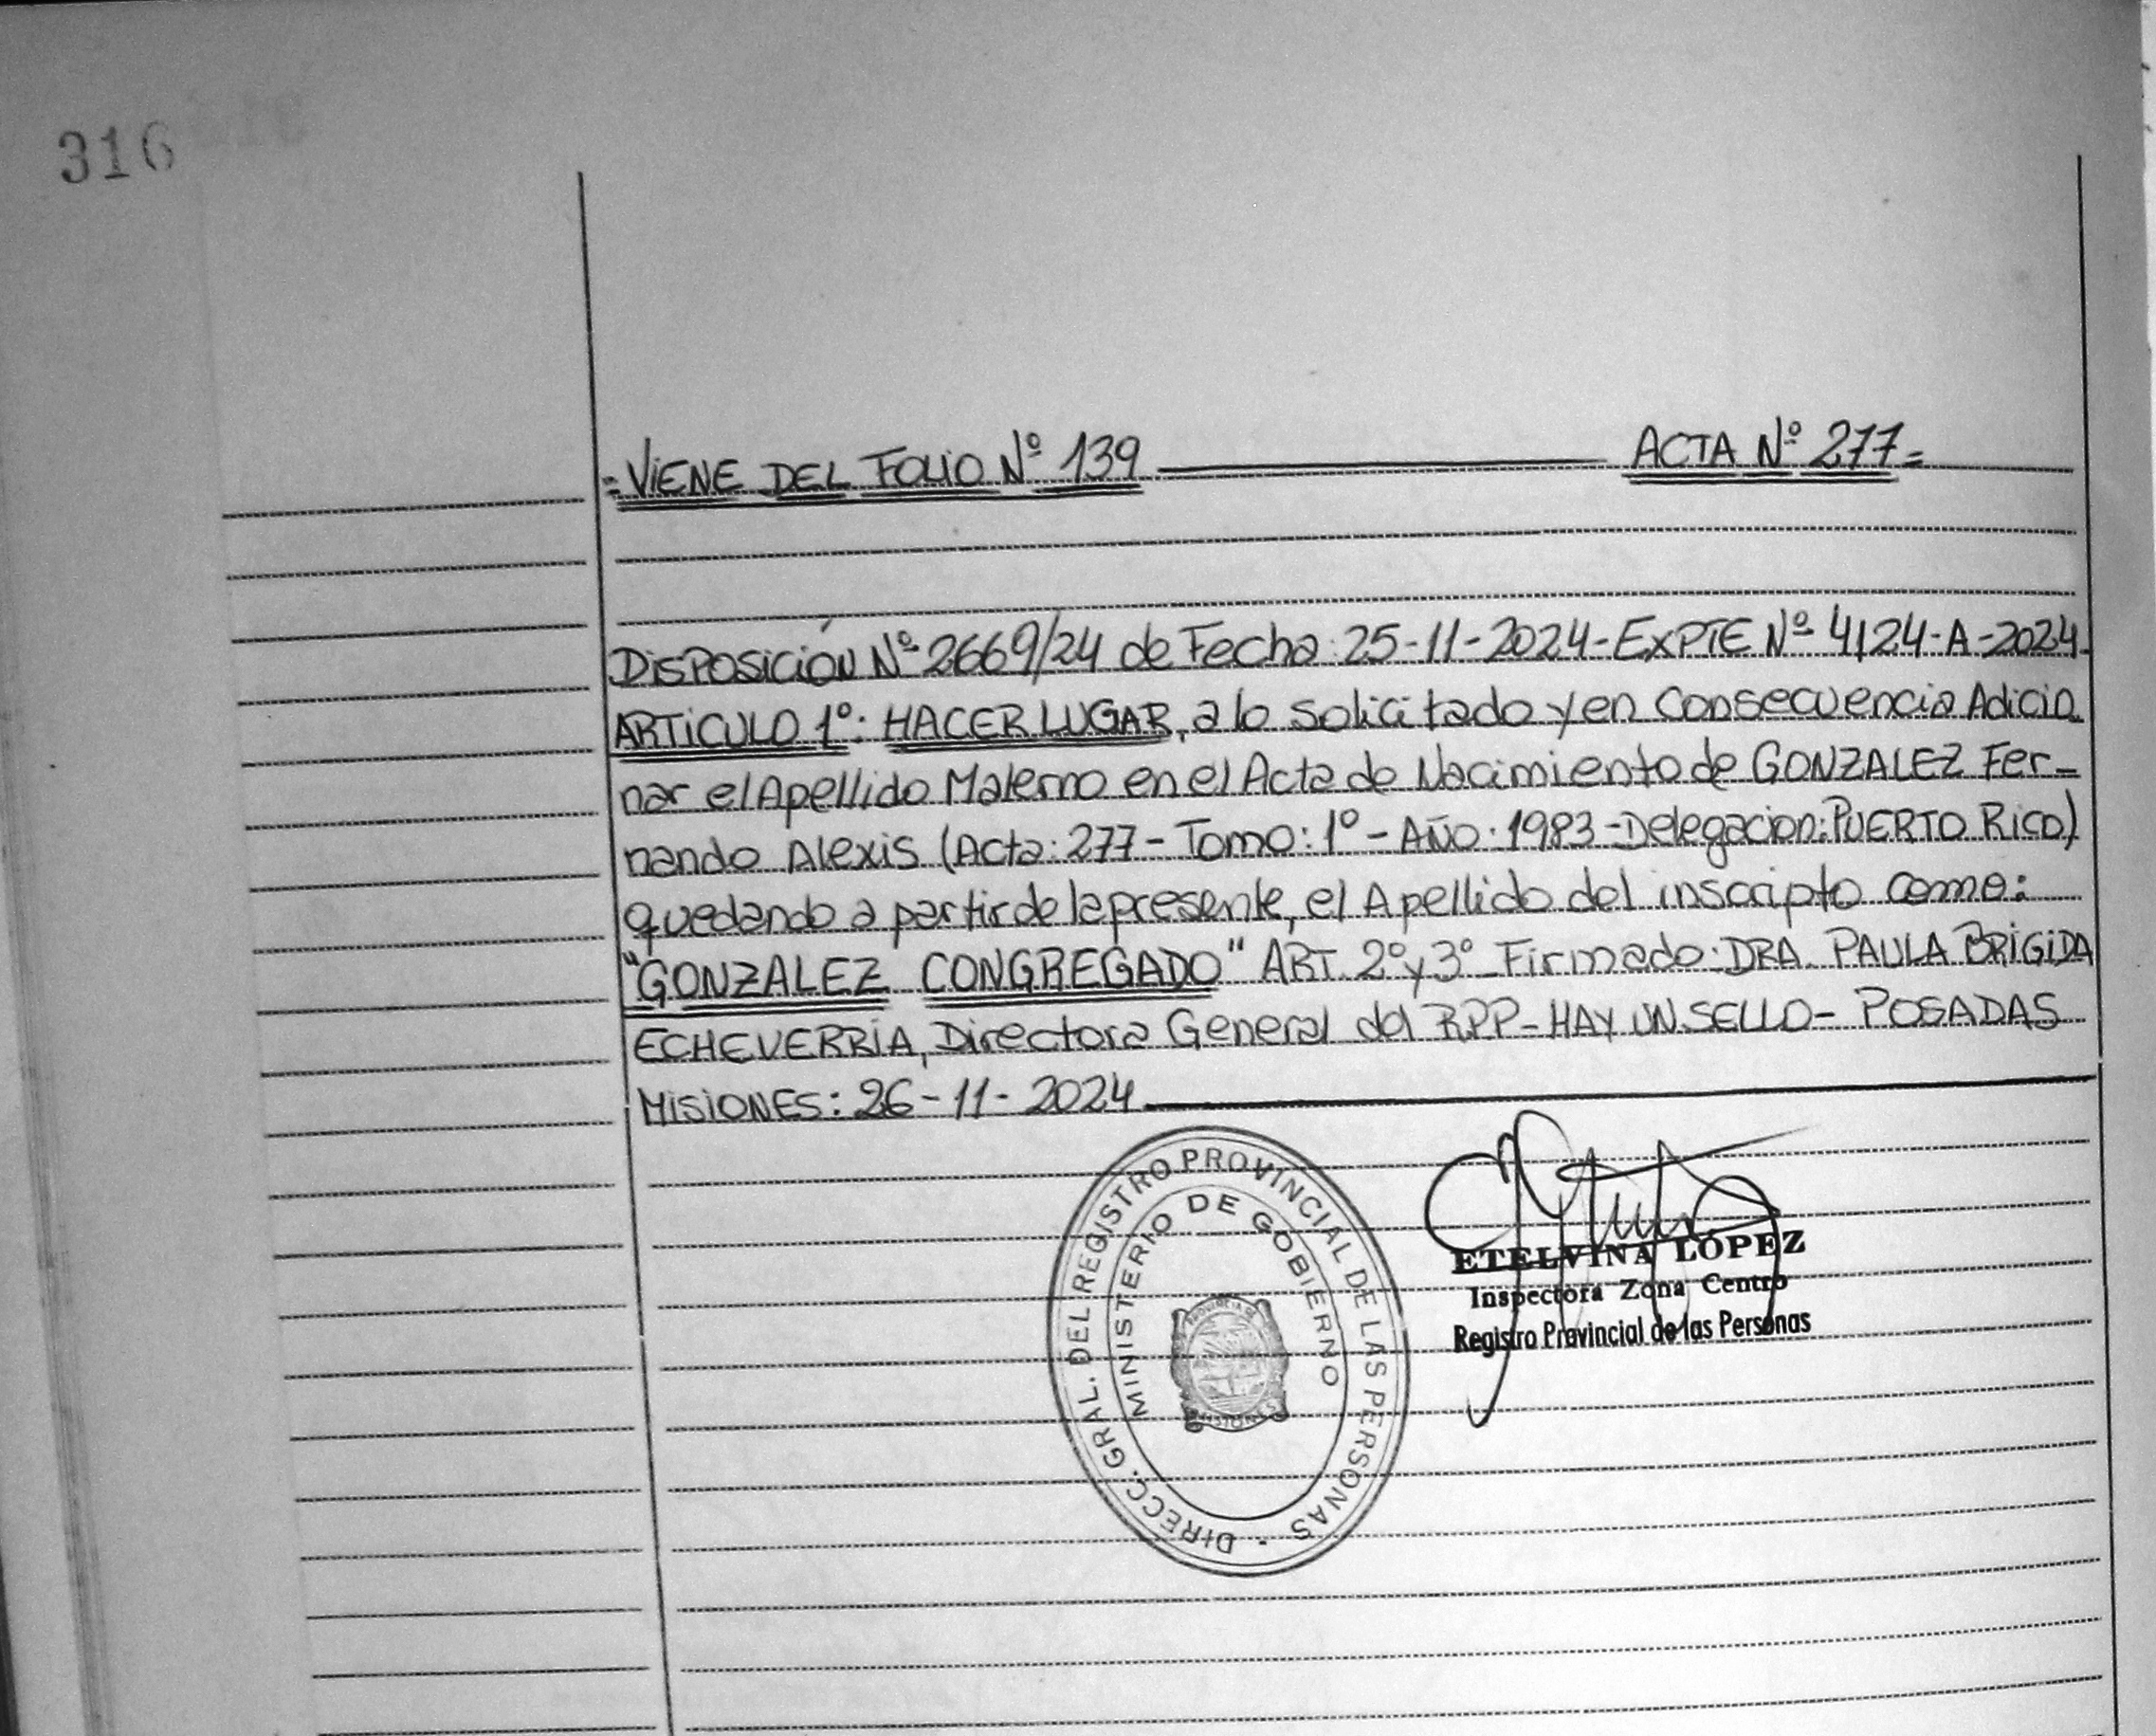 316
=VIENE DEL FOLIO Nº 139 ACTA Nº 277=
DISPOSICIÓN Nº 2669/24 de Fecha: 25-11-2024-EXPTE Nº 4124-A-2024.
ARTICULO 1º: HACER LUGAR, a lo solicitado y en Consecuencia Adicio
nar el Apellido Materno en el Acta de Nacimiento de GONZALEZ Fer-
nando Alexis (Acta: 277- Tomo: 1º- AÑO: 1983-Delegacion: PUERTO RICO)
quedando a partir de la presente, el Apellido del inscripto como:
"GONZALEZ CONGREGADO" ART. 2º y 3º Firmado: DRA. PAULA BRIGIDA
ECHEVERRIA, Directora General del RPP-HAY UN SELLO- POSADAS
MISIONES: 26-11-2024.
DIRECC. GRAL. DEL REGISTRO PROVINCIAL DE LAS PERSONAS
MINISTERIO DE GOBIERNO
PROVINCIA DE
MISIONES
ETELVINA LÓPEZ
Inspectora Zona Centro
Registro Provincial de las Personas